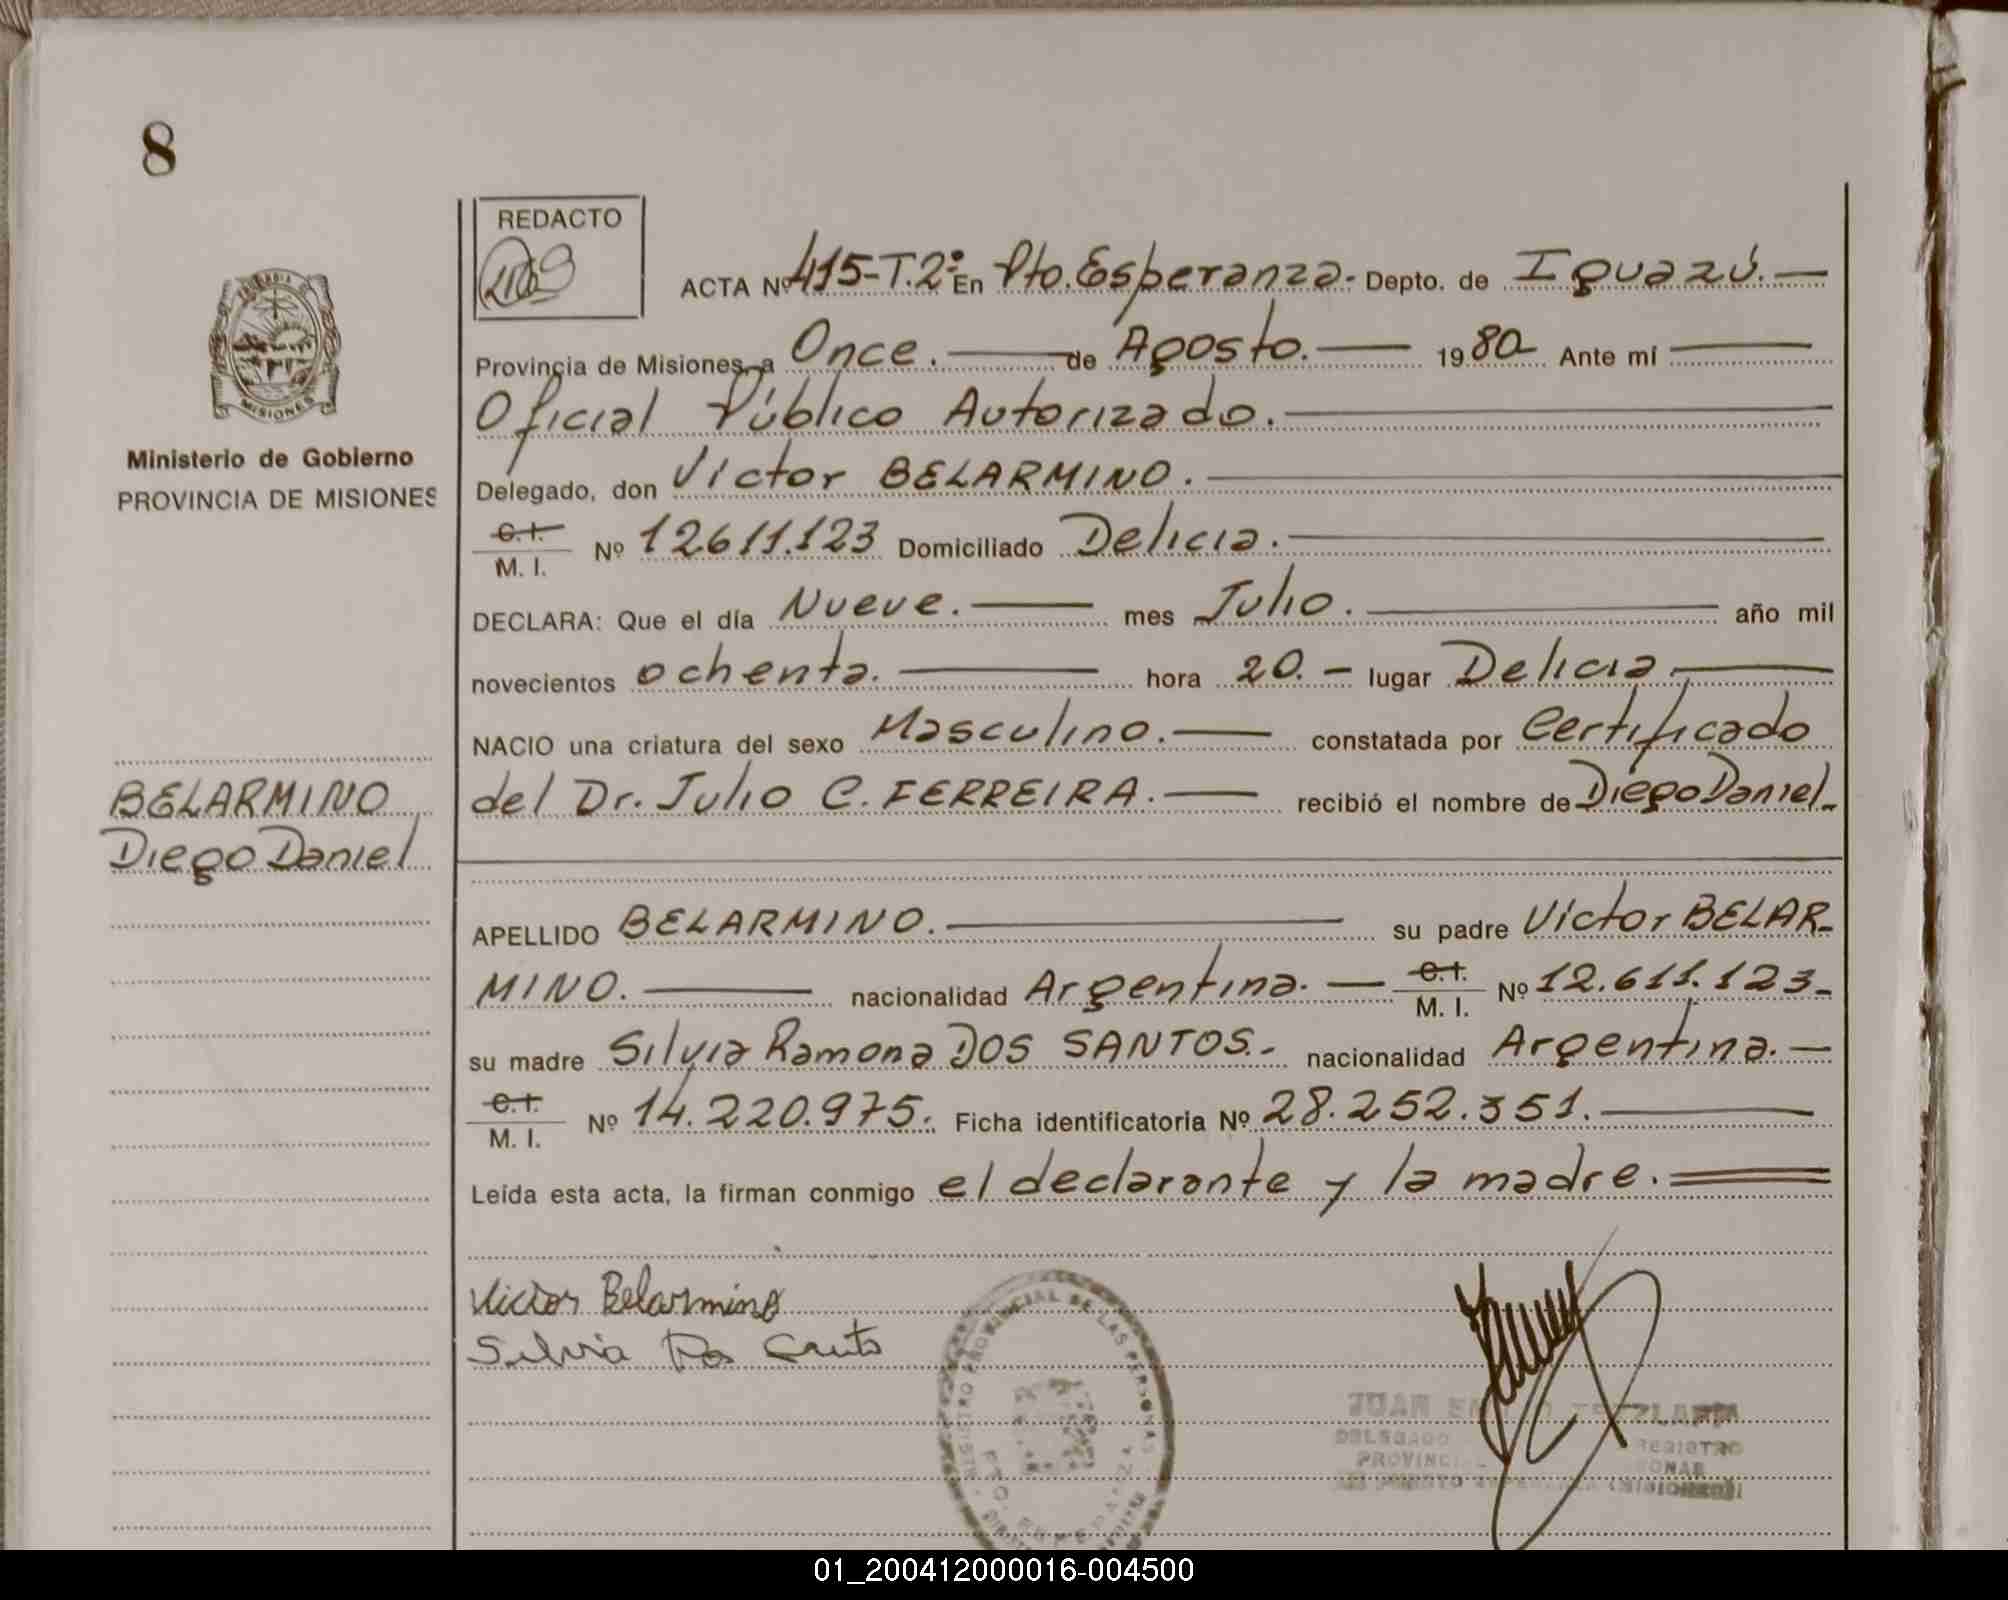 8
REDACTO
ACTA Nº 415-T.2º En Pto. Esperanza.- Depto. de Iguazú.—
Provincia de Misiones, a Once.— de Agosto.— 1980 Ante mí —
Oficial Público Autorizado.—
Delegado, don Victor BELARMINO.—
C.I.
M. I. Nº 12611.123 Domiciliado Delicia.—
DECLARA: Que el día Nueve.— mes Julio.— año mil
novecientos ochenta.— hora 20.- lugar Delicia.—
NACIO una criatura del sexo Masculino.— constatada por Certificado
del Dr. Julio C. FERREIRA.— recibió el nombre de Diego Daniel.-
APELLIDO BELARMINO.— su padre Victor BELAR-
MINO.— nacionalidad Argentina.— C.I.
M. I. Nº 12.611.123-
su madre Silvia Ramona DOS SANTOS.- nacionalidad Argentina.—
C.I.
M. I. Nº 14.220.975. Ficha identificatoria Nº 28.252.351.—
Leída esta acta, la firman conmigo el declarante y la madre.=
Ministerio de Gobierno
PROVINCIA DE MISIONES
MISIONES
BELARMINO
Diego Daniel
Victor Belarmino
Silvia Dos
REGISTRO PROVINCIAL DE LAS PERSONAS
JUAN
DELEGADO REGISTRO
01_200412000016-004500